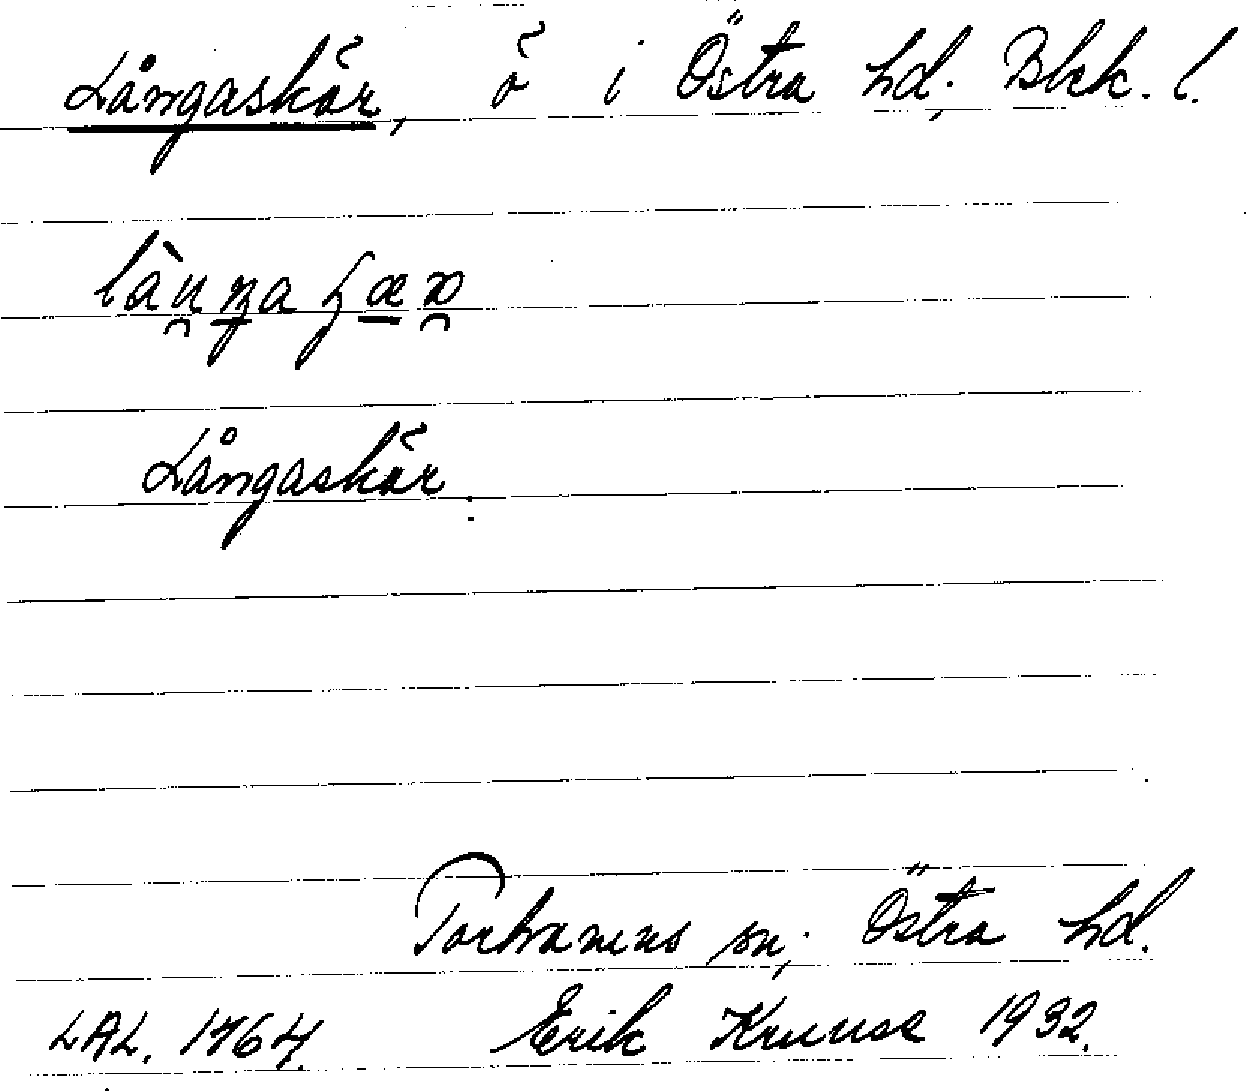 Långaskär, ö i Östra hd, Blek. l.
Långaskär.
Torhamns sn, Östra hd.
LAL. 1764. Erik Kruuse 1932.